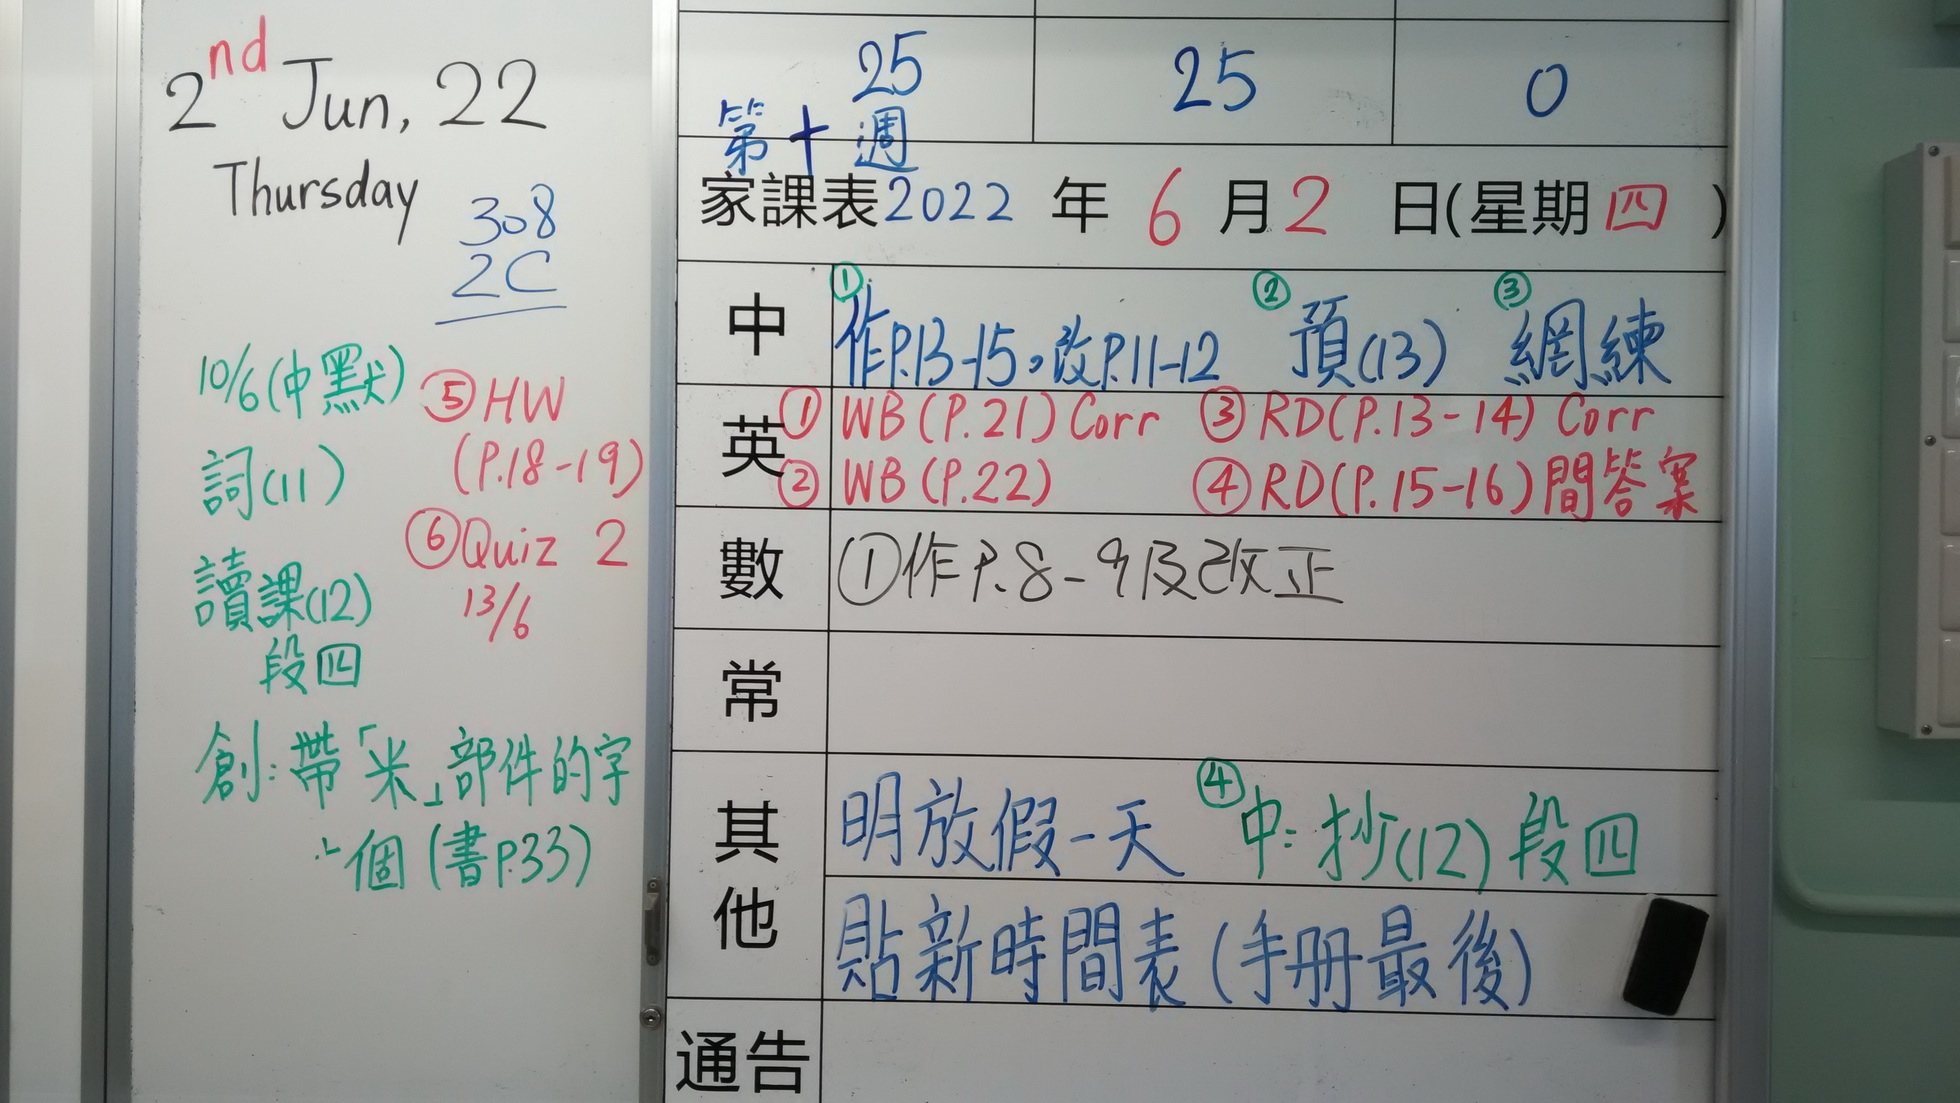 2nd Jun, 22
Thursday
308
2C
10/6 (中默)
詞(11)
讀課(12)
段四
創:帶「米」部件的字
個(書P.33)
⑤HW
(P.18-19)
⑥Quiz 2
13/6
25 25 0
第十週
家課表2022年6月2日(星期四)
中 ①作P.13-15。改P.11-12 ②預(13) ③網練
英 ①WB(P.21) Corr ③RD(P.13-14) Corr
②WB(P.22) ④RD(P.15-16)間答案
數 ①作P.8-9及改正
常
其他 明放假一天 ④中:抄(12)段四
貼新時間表(手册最後)
通告